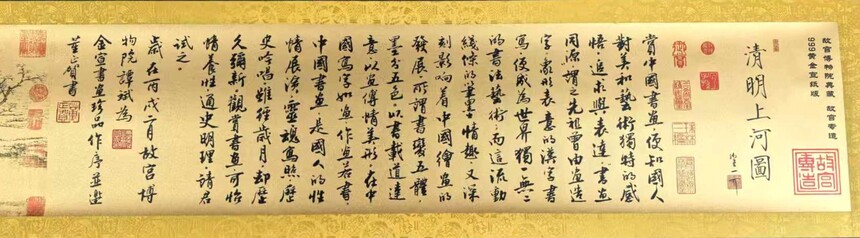 故宫博物院典藏 故宫专造
999黄金宣纸版
故宮專造
清明上河圖
賞中國書畫，便知國人
對美和藝術獨特的感
悟、追求與表達。書畫
同源，謂之先祖曾由畫造
字，象形表意的漢字書
寫，便成為世界獨一無二
的書法藝術，而這流動
綫條的筆墨情趣，又深
刻影响着中國繪畫的
發展，所謂書變五體，
墨分五色，以書載道達
意，以畫傳情美形，在中
國寫字如畫、作畫若書，
中國書畫，是國人的性
情展演、靈魂寫照、歷
史吟唱，雖經歲月，却歷
久彌新，觀賞書畫，可怡
情養性、通史明理，請君
試之。
歲在丙戌二月故宮博
物院譚斌為
金宣書畫珍品作序並邀
董正賀書